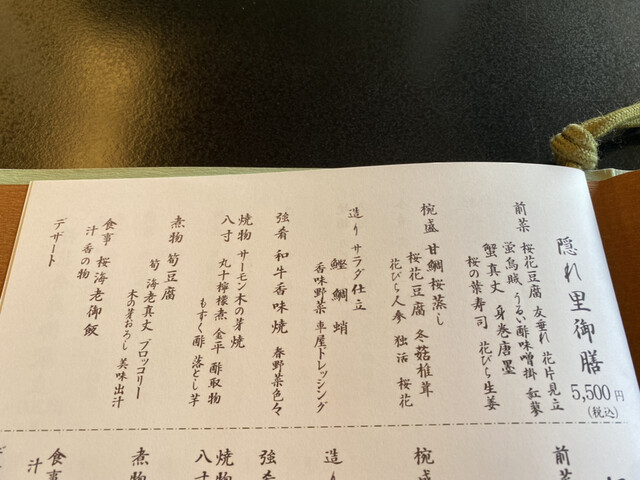 隠れ里御膳 5,500円
(税込)
前菜 桜花豆腐 友垂れ 花片見立
蛍烏賊 うるい酢味噌掛 紅蓼
蟹真丈 身巻唐墨
桜の葉寿司 花びら生姜
椀盛 甘鯛桜蒸し
桜花豆腐 冬菇椎茸
花びら人参 独活 桜花
造り サラダ仕立
鰹 鯛 蛸
香味野菜 車屋ドレッシング
強肴 和牛香味焼 春野菜色々
焼物 サーモン木の芽焼
八寸 丸十檸檬煮 金平 酢取物
もずく酢 落とし芋
煮物 筍豆腐
筍 海老真丈 ブロッコリー
木の芽おろし 美味出汁
食事 桜海老御飯
汁 香の物
デザート
前菜
椀盛
造り
強肴
焼物
八寸
煮物
食事
汁
デ